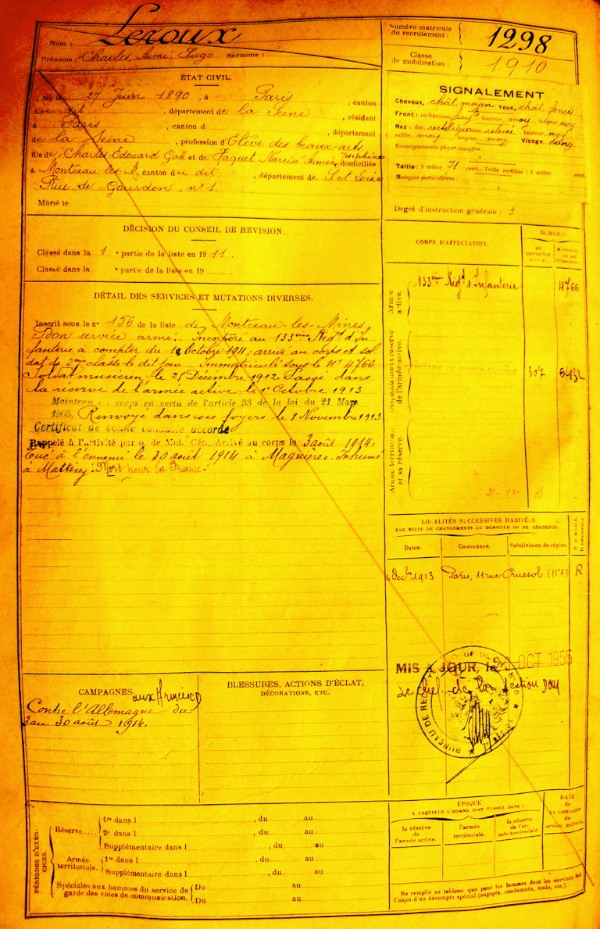 Nom : Leroux
Prénoms : Charles, Aimé, Hugo Surnoms :
Numéro matricule
du recrutement : 1298
Classe
de mobilisation : 1910
ÉTAT CIVIL.
Né le 27 Juin 1890, à Paris, canton
du dit, département de la Seine, résidant
à Paris, canton d, département
de la Seine, profession d'Élève des beaux-arts
fils de Charles Edouard Gab et de Paquet Narcisse Aimée Joséphine domiciliés
à Montceau les M. canton du dit, département de S. et Loire
Rue de Gourdon n° 1.
Marié le
SIGNALEMENT
Cheveux, chât. moyen Yeux, chât. foncé
Front : inclinaison hauteur moy largeur moy
Nez : dos rectiligne base relevée hauteur moy
saillie moy largeur moy Visage long
Renseignements physion. complém.
Taille : 1 mètre 71 cent. Taille rectifiée : 1 mètre cent.
Marques particulières :
Degré d'instruction générale : 3
DÉCISION DU CONSEIL DE RÉVISION.
Classé dans la 1 e partie de la liste en 1911.
Classé dans la e partie de la liste en 19
DÉTAIL DES SERVICES ET MUTATIONS DIVERSES.
Inscrit sous le n° 156 de la liste de Montceau-les-Mines
Bon service armé. Incorporé au 133ème Régt d'In
fanterie à compter du 1 Octobre 1911, arrivé au corps et sol
dat de 2ème classe le dit jour. Immatriculé sous le N° 4766.
Soldat musicien le 21 Décembre 1912. Passé dans
la réserve de l'armée active le 1er Octobre 1913
Maintenu au corps en vertu de l'article 33 de la loi du 21 Mars
1905. Renvoyé dans ses foyers le 8 Novembre 1913
Certificat de bonne conduite accordé
Rappelé à l'activité par o. de Mob. Gén. Arrivé au corps le 3 août 1914.
Tué à l'ennemi le 30 août 1914 à Magnières. Inhumé
à Mattexey. Mort pour la France
CORPS D'AFFECTATION.
NUMÉROS
Armée active.
133ème Régt d'Infanterie
4766
Disponibilité et réserve de l'armée active.
307
Armée territoriale et sa réserve.
LOCALITÉS SUCCESSIVES HABITÉES
PAR SUITE DE CHANGEMENTS DE DOMICILE OU DE RÉSIDENCE.
Dates. Communes. Subdivision de région. D. DOMICILE R. RÉSIDENCE
4 Décbre 1913 Paris, 11 rue Crussol (11e A) R
MIS à JOUR, le OCT 1955
Le chef de la section
BUREAU DE RE
CAMPAGNES.
Contre l'Allemagne du
3 au 30 août 1914.
BLESSURES, ACTIONS D'ÉCLAT,
DÉCORATIONS, ETC.
PÉRIODES D'EXERCICES.
Réserve
1re dans l , du au
2e dans l , du au
Supplémentaire dans l , du au
Armée territoriale.
1re dans l , du au
Supplémentaire dans l , du au
Spéciales aux hommes du service de
garde des voies de communication. Du au
Du au
ÉPOQUE
À LAQUELLE L'HOMME DOIT PASSER DANS :
la réserve de l'armée active. l'armée territoriale. la réserve de l'armée territoriale.
DATE de LA LIBÉRATION du service militaire.
Ne remplir ce tableau que pour les hommes dont les services font
l'objet d'un décompte spécial (engagés, condamnés, omis, etc.)